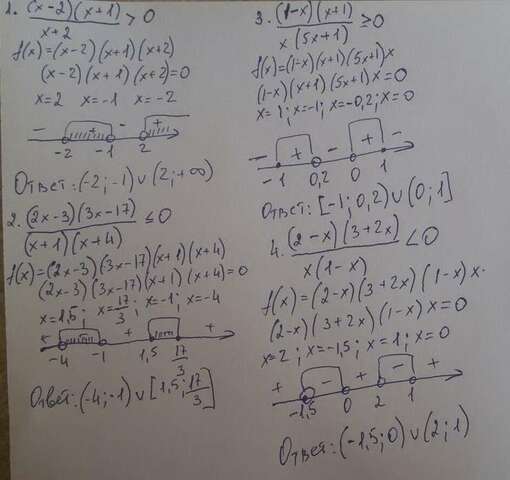 1. (x-2)(x+1)/(x+2) > 0
f(x)=(x-2)(x+1)(x+2)
(x-2)(x+1)(x+2)=0
x=2 x=-1 x=-2
- + - +
-2 -1 2
Ответ: (-2;-1)∪(2;+∞)
2. (2x-3)(3x-17)/((x+1)(x+4)) ≤0
f(x)=(2x-3)(3x-17)(x+1)(x+4)
(2x-3)(3x-17)(x+1)(x+4)=0
x=1,5; x=17/3; x=-1; x=-4
+ - + - +
-4 -1 1,5 17/3
Ответ: (-4;-1)∪[1,5;17/3]
3. (1-x)(x+1)/(x(5x+1)) ≥0
f(x)=(1-x)(x+1)(5x+1)x
(1-x)(x+1)(5x+1)x=0
x=1; x=-1; x=-0,2; x=0
- + - + -
-1 0,2 0 1
Ответ: [-1;0,2)∪(0;1]
4. (2-x)(3+2x)/(x(1-x)) <0
f(x)=(2-x)(3+2x)(1-x)x.
(2-x)(3+2x)(1-x)x=0
x=2; x=-1,5; x=1; x=0
+ - + - +
-1,5 0 2 1
Ответ: (-1,5;0)∪(2;1)